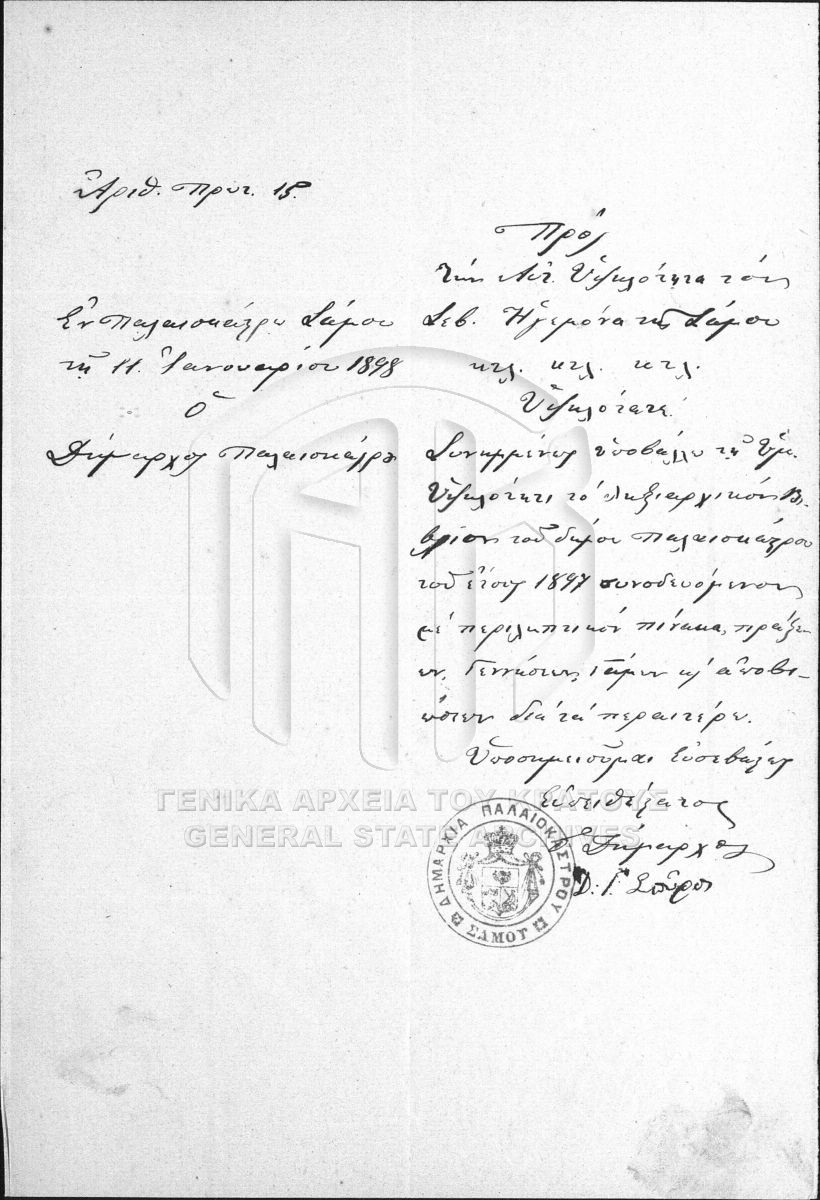 Ἀριθ. Πρωτ. 15.
Ἐν Παλαιοκάστρῳ Σάμου
τῇ 11 Ἰανουαρίου 1898
Ὁ
Δήμαρχος Παλαιοκάστρου
Πρὸς
τὴν Αὐτ. Ὑψηλότητα τὸν
Σεβ. Ἡγεμόνα τῆς Σάμου
κτλ. κτλ. κτλ.
Ὑψηλότατε!
Συνημμένως ὑποβάλλω τῇ Ὑμ.
Ὑψηλότητι τὸ ληξιαρχικὸν Βι-
βλίον τοῦ δήμου Παλαιοκάστρου
τοῦ ἔτους 1897 συνοδευόμενον
μὲ περιληπτικὸν πίνακα πράξε-
ων, Γεννήσεων, Γάμων κ' ἀποβι-
ώσεων διὰ τὰ περαιτέρω.
Ὑποσημειοῦμαι Εὐσεβάστως
Εὐπειθέστατος
Ὁ Δήμαρχος
Δ. Γ.
ΔΗΜΑΡΧΙΑ ΠΑΛΑΙΟΚΑΣΤΡΟΥ
ΣΑΜΟΥ
ΓΕΝΙΚΑ ΑΡΧΕΙΑ ΤΟΥ ΚΡΑΤΟΥΣ
GENERAL STATE ARCHIVES